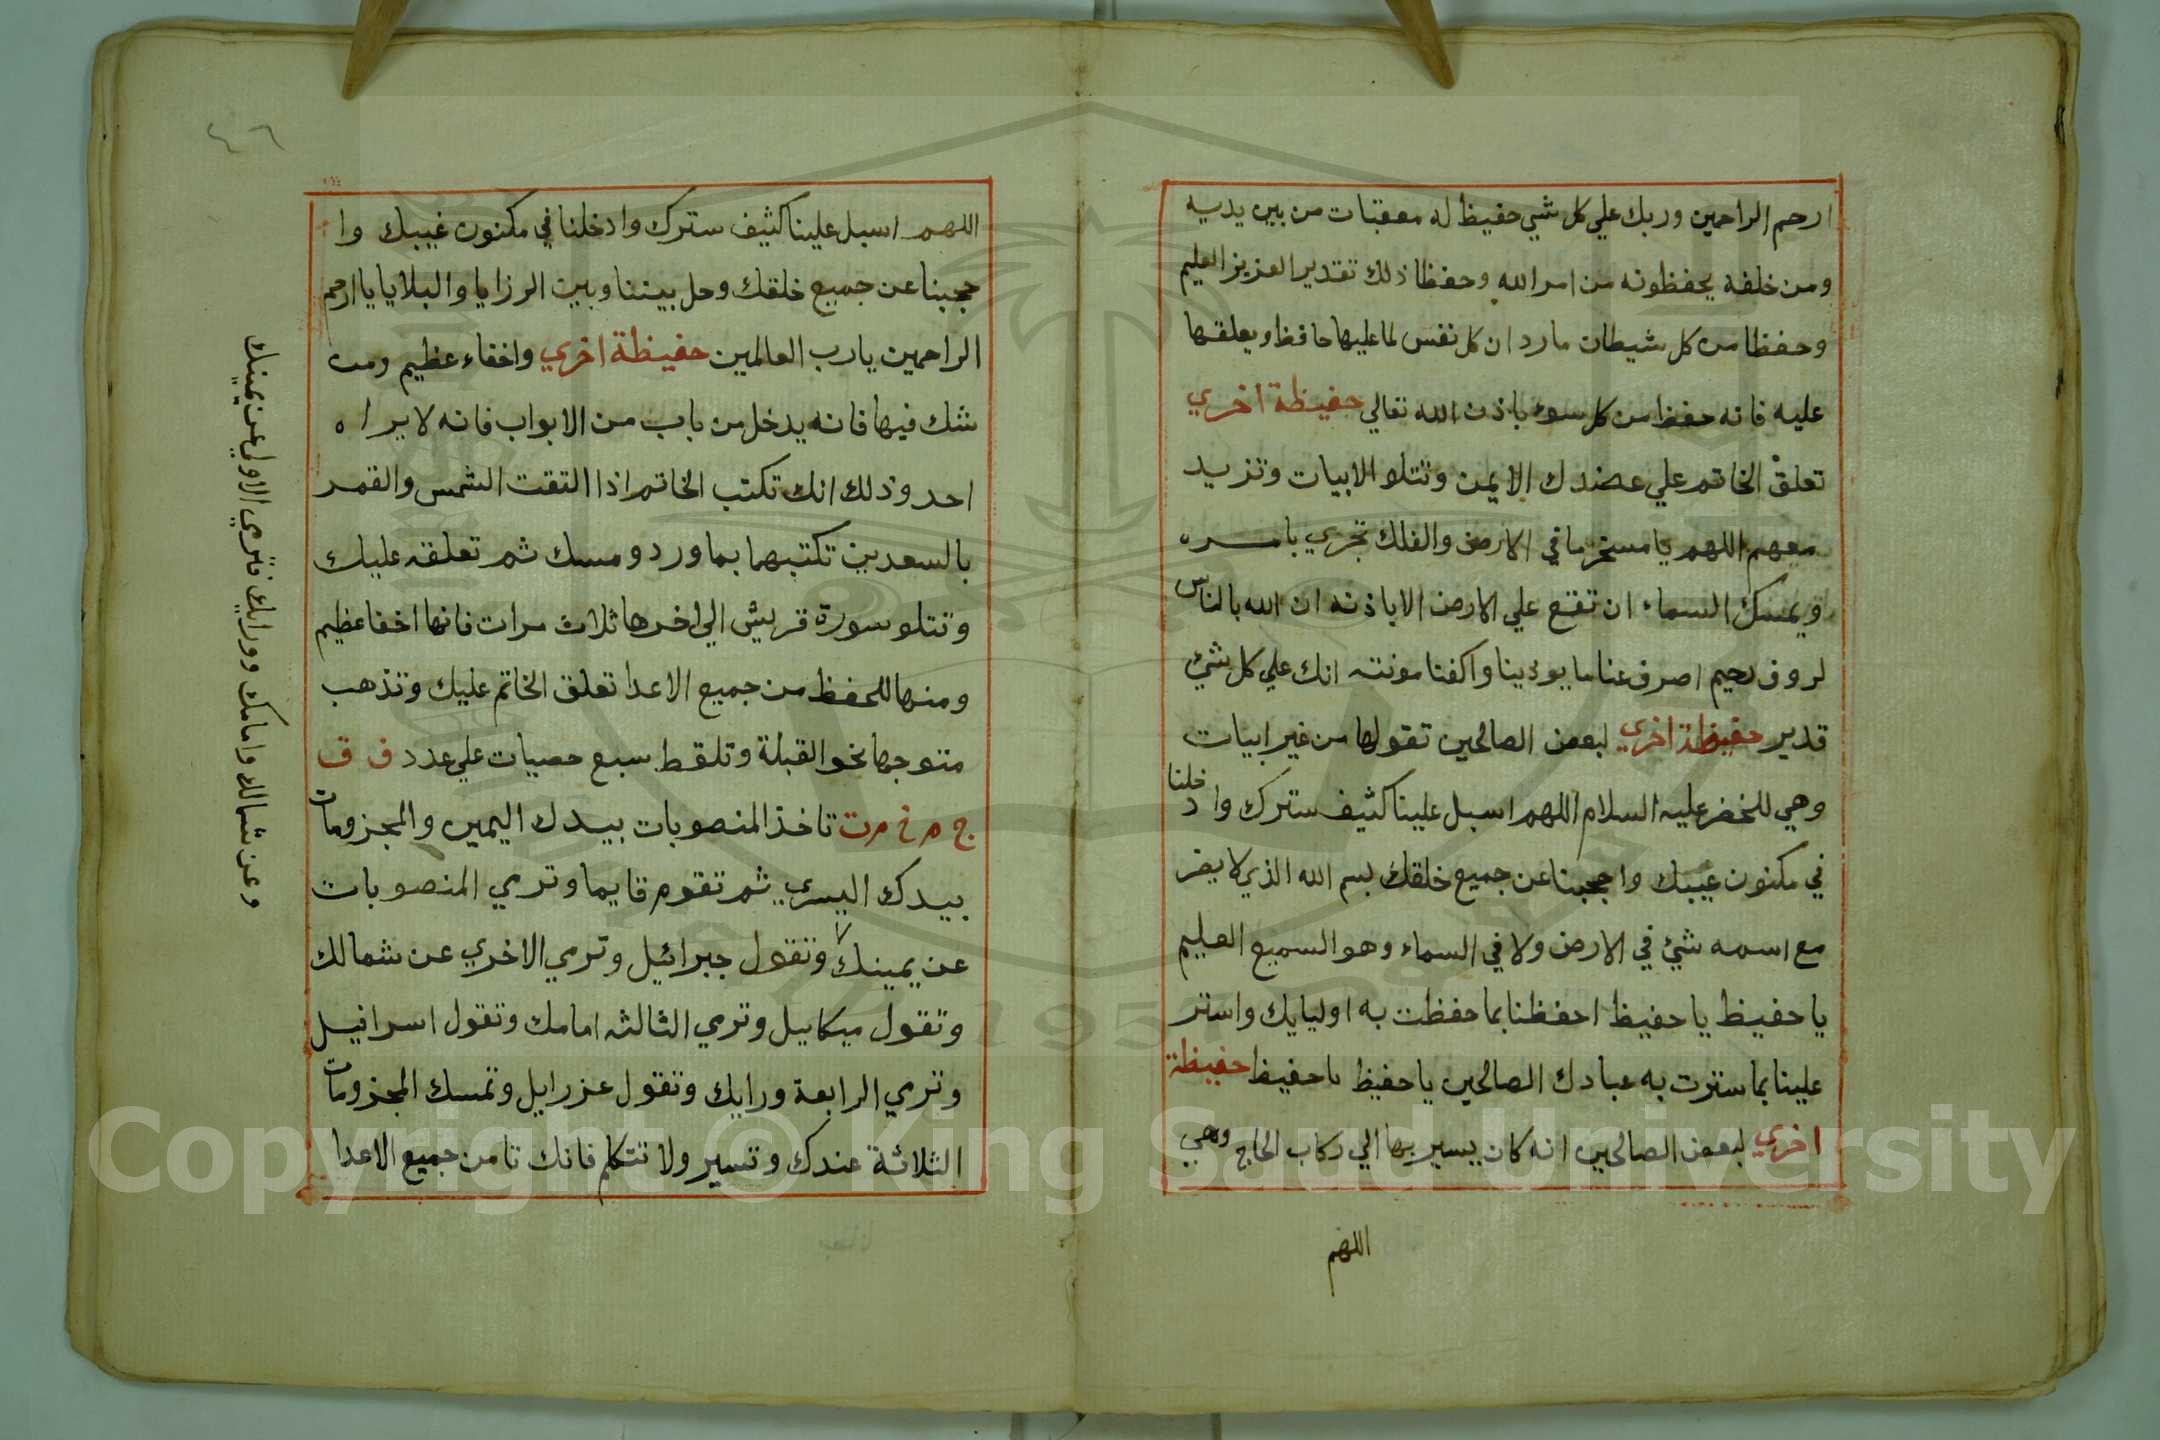 ارحم الراحمين وربك علي كل شي حفيظ له معقبات من بين يديه
ومن خلفه يحفظونه من امر الله وحفظا ذلك تقدير العزيز العليم
وحفظا من كل شيطان مارد ان كل نفس لما عليها حافظ ويعلقها
عليه فانه حفظ من كل سوء باذن الله تعالي حفيظة اخري
تعلق الخاتم علي عضدك الايمن وتتلو الابيات وتزيد
معهم اللهم يا مسخر ما في الارض والفلك تجري بامره
ويمسك السماء ان تقع علي الارض الا باذنه ان الله بالناس
لروف رحيم اصرف عنا ما يوذينا واكفنا مونته انك علي كل شئ
قدير حفيظة اخري لبعض الصالحين تقولها من غير ابيات
وهي للخضر عليه السلام اللهم اسبل علينا كثيف سترك وادخلنا
في مكنون غيبك واحجبنا عن جميع خلقك بسم الله الذي لا يضر
مع اسمه شئ في الارض ولا في السماء وهو السميع العليم
يا حفيظ يا حفيظ احفظنا بما حفظت به اوليايك واستر
علينا بما سترت به عبادك الصالحين يا حفيظ يا حفيظ حفيظة
اخري لبعض الصالحين انه كان يسير بها الي ركاب الحاج وهي
اللهم
٤٦
اللهم اسبل علينا كثيف سترك وادخلنا في مكنون غيبك وا
حجبنا عن جميع خلقك وحل بيننا وبين الرزايا والبلايا يا ارحم
الراحمين يا رب العالمين حفيظة اخري واخفاء عظيم ومن
شك فيها فانه يدخل من باب من الابواب فانه لا يراه
احد وذلك انك تكتب الخاتم اذا التقت الشمس والقمر
بالسعدين تكتبهما بماورد ومسك ثم تعلقه عليك
وتتلو سورة قريش الي اخرها ثلاث مرات فانها اخفا عظيم
ومنها للحفظ من جميع الاعدا تعلق الخاتم عليك وتذهب
متوجها نحو القبلة وتلقط سبع حصيات علي عدد ف ق
ج م خ مرت تاخذ المنصوبات بيدك اليمين والمجزومات
بيدك اليسري ثم تقوم قايما وترمي المنصوبات
عن يمينك وتقول جبرائيل وترمي الاخري عن شمالك
وتقول ميكاييل وترمي الثالثه امامك وتقول اسرافيل
وترمي الرابعة ورايك وتقول عزرايل وتمسك المجزومات
الثلاثة عندك وتسير ولا تتكلم فانك تامن جميع الاعدا
فترمي الاولي عن يمينك
وعن شمالك وامامك وورايك
Copyright © King Saud University
1957